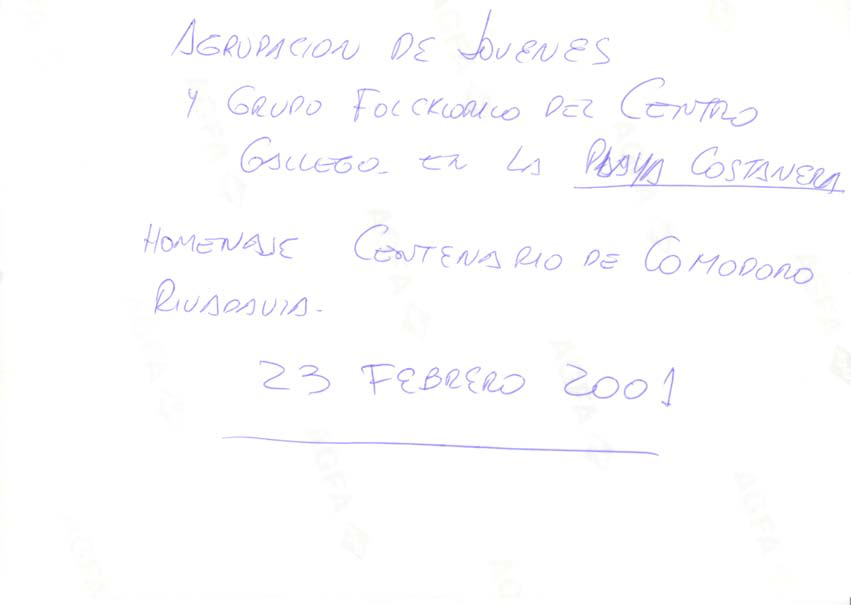 AGRUPACION DE JOVENES
Y GRUPO FOLCKLORICO DEL CENTRO
GALLEGO. EN LA PLAYA COSTANERA
HOMENAJE CENTENARIO DE COMODORO
RIVADAVIA.
23 FEBRERO 2001
AGFA
AGFA
AGFA
AGFA
AGFA
AGFA
AGFA
AGFA
AGFA